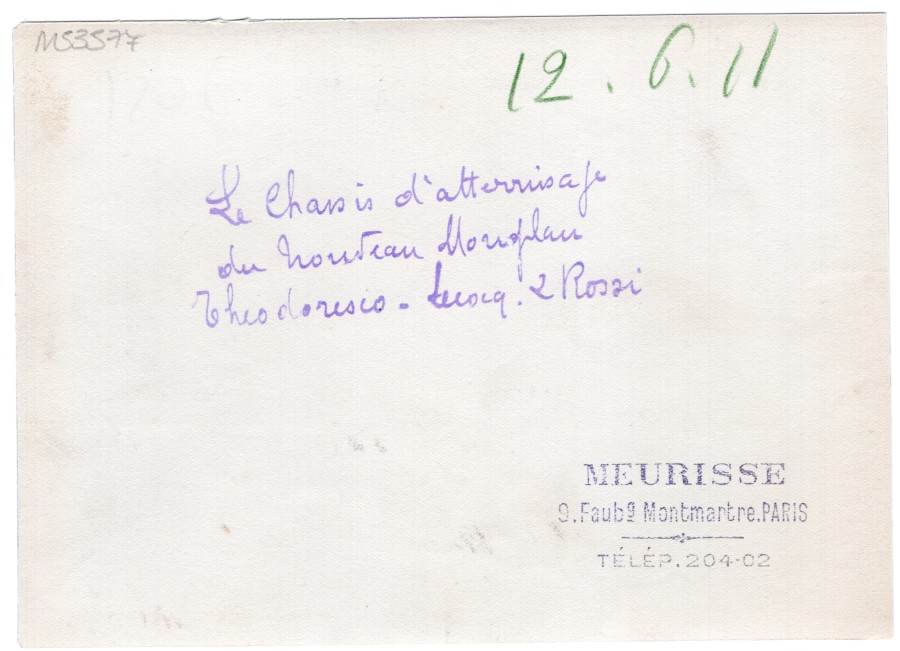 M53577
12.6.11
Le Chassis d'atterrisage
du nouveau Monoplan
Theodoresco - Lecocq. & Rossi
MEURISSE
9. Faubg Montmartre. PARIS
TÉLÉP. 204-02